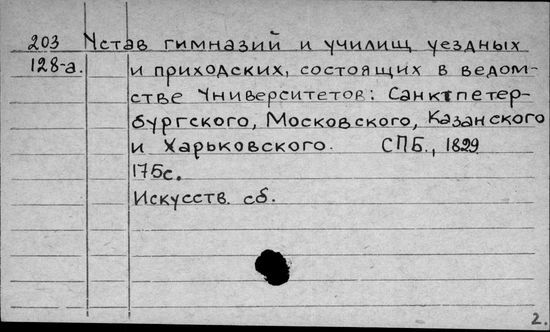 203 Устав гимназий и училищ уездных
128-а. и приходских, состоящих в ведом-
стве Университетов: Санктпетер-
бургского, Московского, Казанского
и Харьковского. СПБ., 1829
175с.
Искусств. сб.
2.